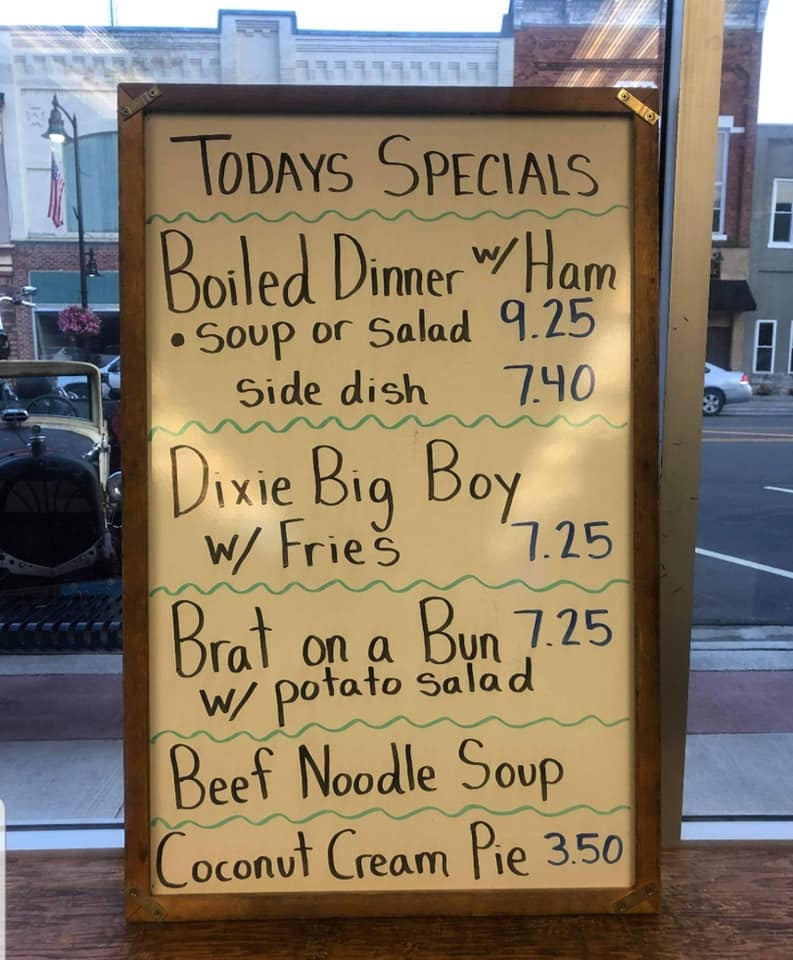 TODAYS SPECIALS
Boiled Dinner w/ Ham
• soup or salad 9.25
side dish 7.40
Dixie Big Boy
w/ Fries 7.25
Brat on a Bun 7.25
w/ potato salad
Beef Noodle Soup
Coconut Cream Pie 3.50